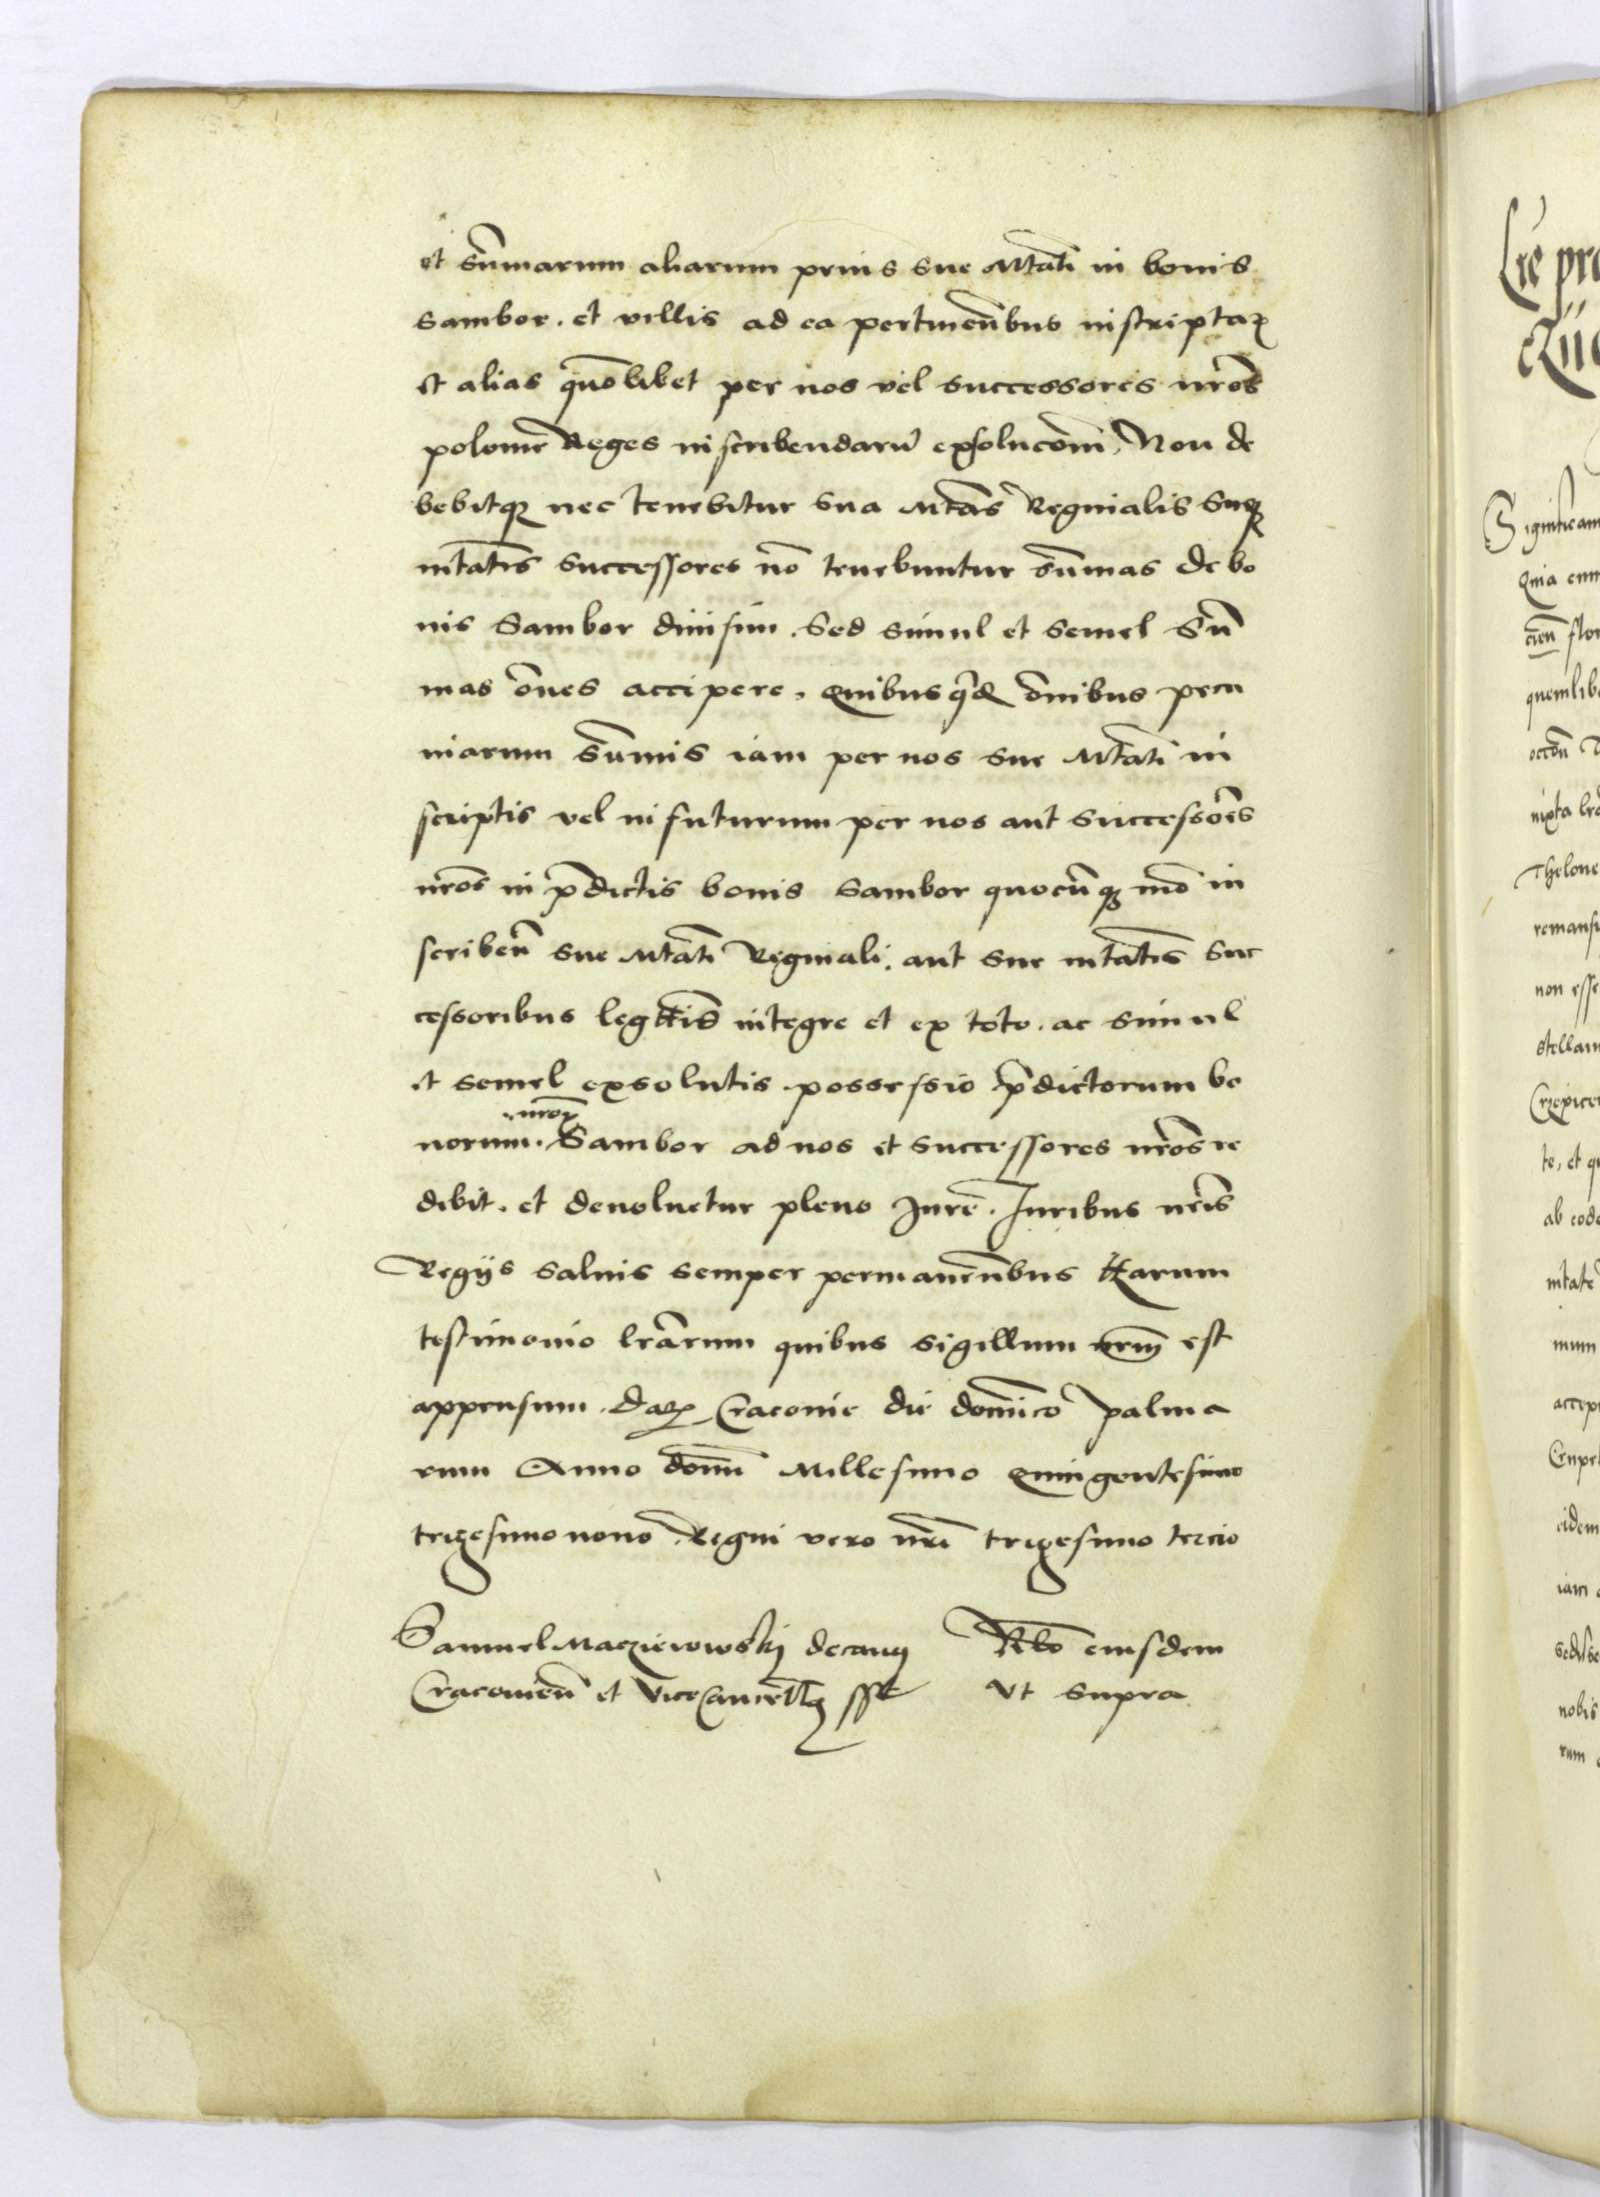 et sūmarum aliarum prius sue Mtati in bonis
Sambor. et villis ad ea pertineñbus inscriptaꝝ
et alias quōlibet per nos vel successores nr̄os
polonie Reges inscribendarū exsoluc̄om̄. Non de
bebitqꝫ nec tenebitur Sua Mtas Reginalis Sueqꝫ
mtatis successores nō tenebuntur sūmas de bo
nis Sambor diuisim. Sed simul et semel Sū
mas ōnes accipere. Quibus qdē ōnibus pecu
niarum sūmis iam per nos Sue Mtati in
scriptis vel in futurum per nos aut Successores
nr̄os in p̄dictis bonis Sambor quocūqꝫ mō in
scribeñ Sue Mtati Reginali. aut Sue mtatis Suc
cessoribus legttis integre et ex toto. ac Simul
et semel exsolutis. possessio p̄dictorum bo
norum. nr̄oꝝ Sambor ad nos et successores nr̄os re
dibit. et deuoluetur pleno Jure. Juribus nr̄is
Regijs Saluis semper permaneñbus Harum
testimonio lr̄arum quibus sigillum nr̄m est
appensum. Datꝝ Cracouie die dominico Palma
rum Anno domi Millesimo Quingentesimo
trigesimonono. Regni vero nr̄i trigesimo tercio
Samuel Macziewowskij decanꝰ Rᵇᵒ eiusdem
Cracouieñ et ViceCancellꝰ sst Vt supra
Lr̄e pr
Significam
Quia cum
cieñ flor
quemlib
octou
iuxta lr̄a
Thelone
remansi
non esse
stellam
Crzepice
te, et qu
ab eode
mtate
mum
accepi
idem
iam
nobis
rum